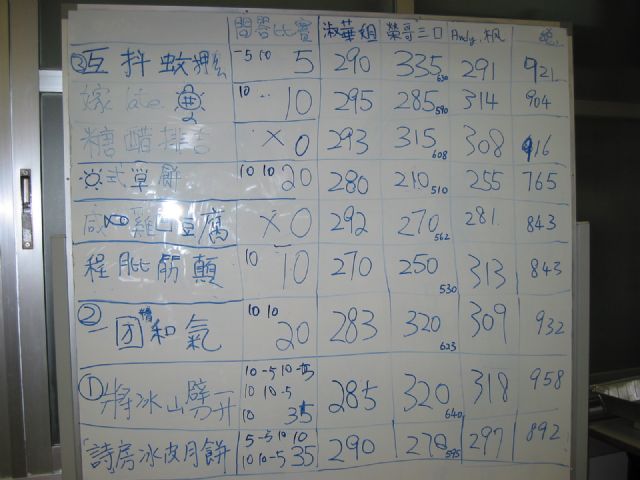 問答比賽 淑華組 榮哥三口 Andy.楓
③互抖蚊押 -5 10 5 290 335 630 291 921
嫁 10 10 295 285 590 314 904
糖醋排舌 X 0 293 315 608 308 916
式單餅 10 10 20 280 210 510 255 765
雞山豆腐 X 0 292 270 562 281 843
程肶筋顛 10 10 270 250 530 313 843
②一团和氣 10 10 20 283 320 623 309 932
①將冰山劈开 10 -5 10 -5 10 10 -5 10 35 285 320 640 318 958
詩房冰皮月餅 5 -5 10 10 10 10 -5 35 290 278 595 297 892